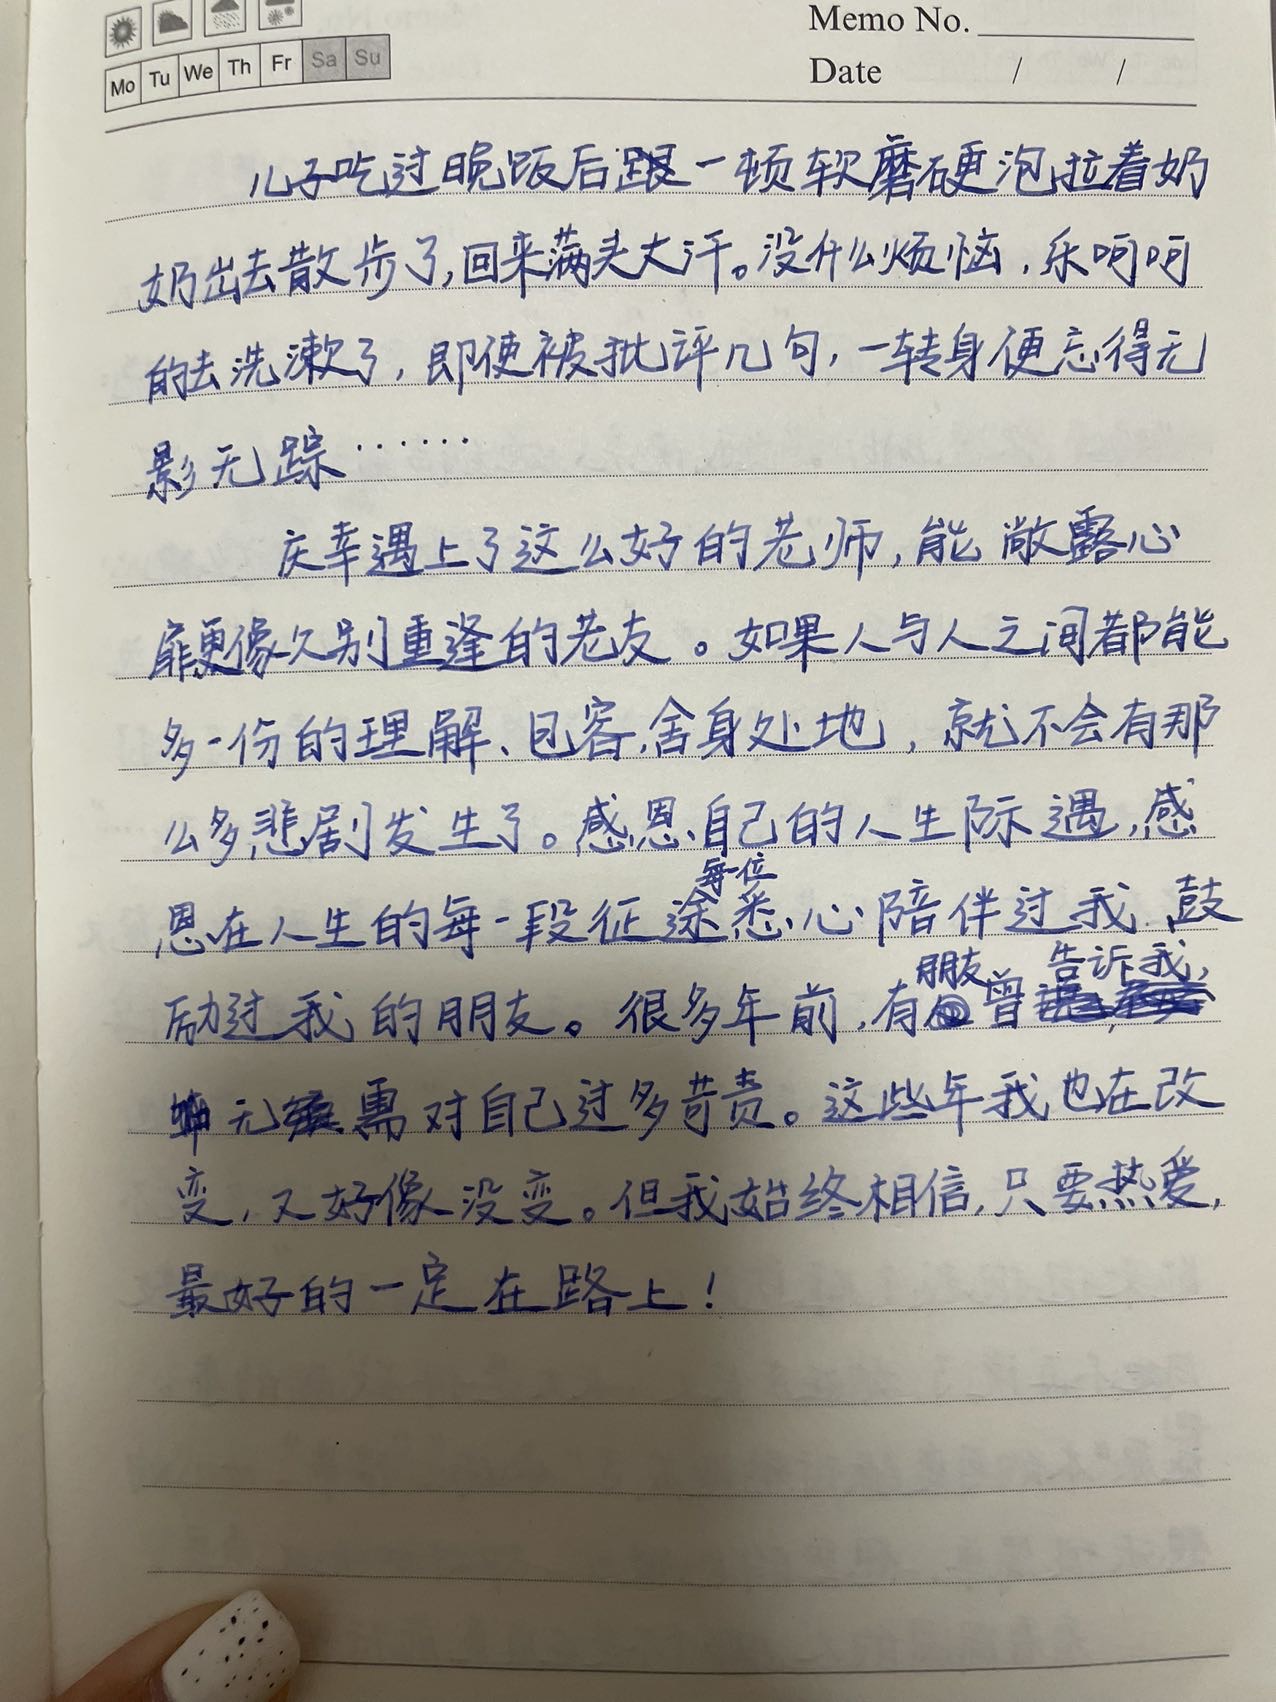 Memo No.
Mo Tu We Th Fr Sa Su
Date / /
儿子吃过晚饭后跟一顿软磨硬泡拉着奶
奶出去散步了,回来满头大汗。没什么烦恼,乐呵呵
的去洗漱了,即使被批评几句,一转身便忘得无
影无踪……
庆幸遇上了这么好的老师,能敞露心
扉更像久别重逢的老友。如果人与人之间都能
多一份的理解、包容,舍身处地,就不会有那
么多悲剧发生了。感恩自己的人生际遇,感
恩在人生的每一段征途每一位悉心陪伴过我、鼓
励过我的朋友。很多年前,有朋友曾告诉我,
无需对自己过多苛责。这些年我也在改
变,又好像没变。但我始终相信,只要热爱,
最好的一定在路上!